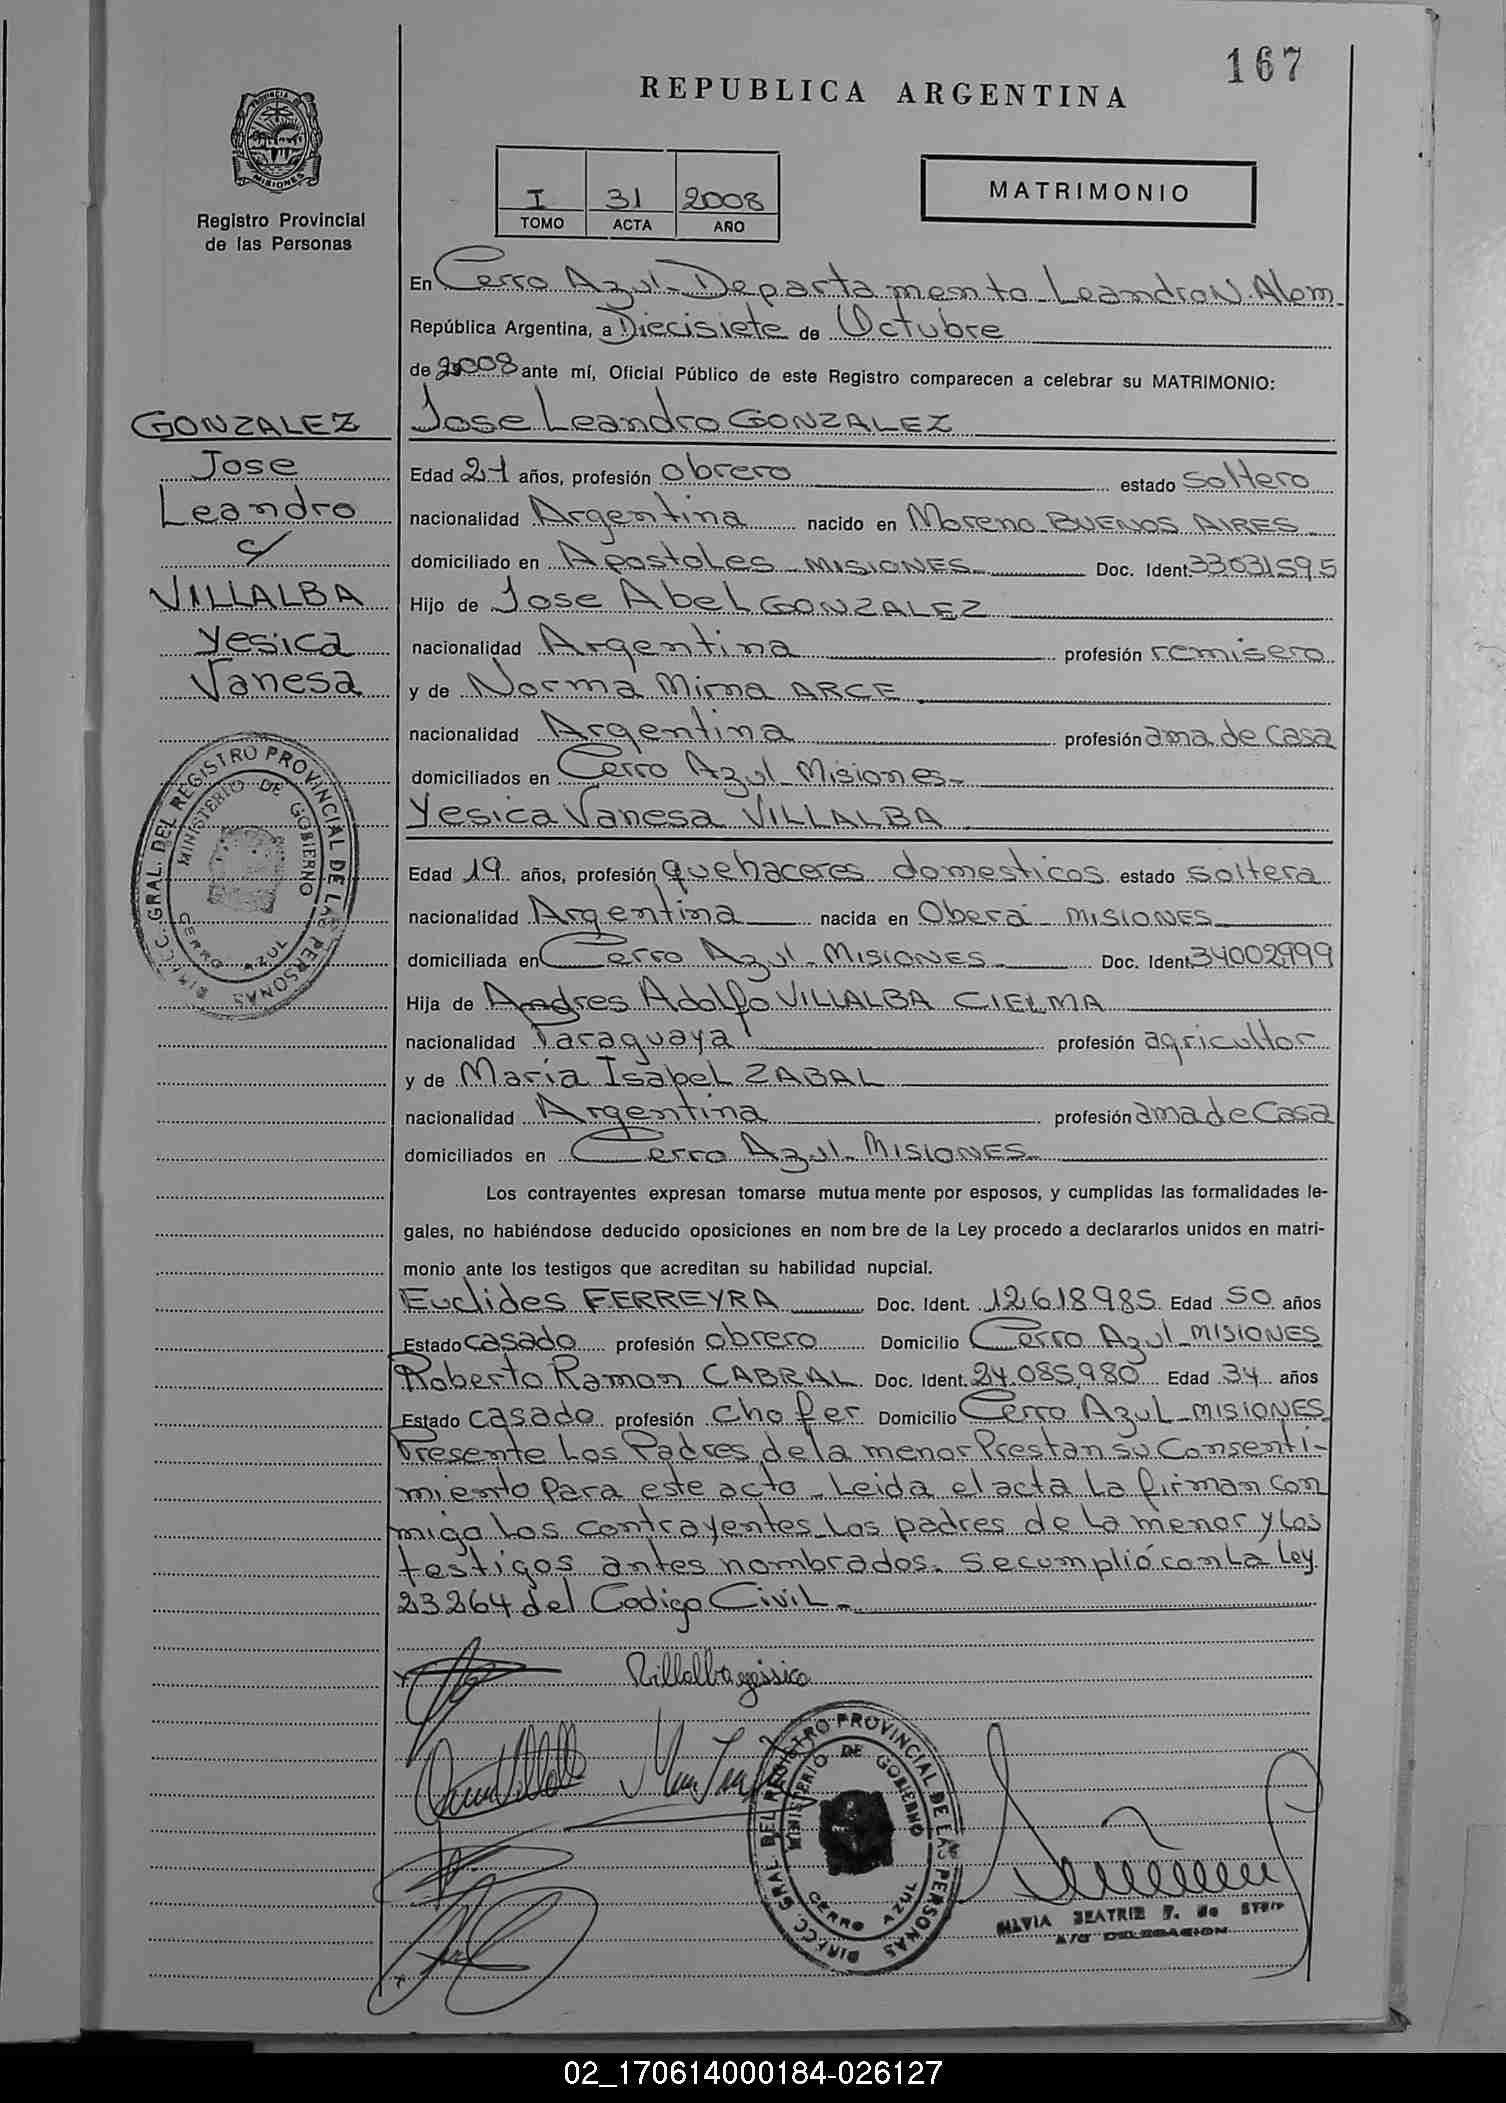 167
REPUBLICA ARGENTINA
PROVINCIA DE
MISIONES
Registro Provincial
de las Personas
I 31 2008
TOMO ACTA AÑO
MATRIMONIO
En Cerro Azul - Departamento Leandro N. Alem -
República Argentina, a Diecisiete de Octubre
de 2008 ante mí, Oficial Público de este Registro comparecen a celebrar su MATRIMONIO:
GONZALEZ
Jose
Leandro
c/
VILLALBA
Yesica
Vanesa
Jose Leandro GONZALEZ
Edad 21 años, profesión obrero estado soltero
nacionalidad Argentina nacido en Moreno BUENOS AIRES
domiciliado en Apostoles - MISIONES - Doc. Ident. 33031595
Hijo de Jose Abel GONZALEZ
nacionalidad Argentina profesión remisero
y de Norma Mirna ARCE
nacionalidad Argentina profesión ama de casa
domiciliados en Cerro Azul - Misiones -
Yesica Vanesa VILLALBA
Edad 19 años, profesión quehaceres domesticos estado soltera
nacionalidad Argentina nacida en Oberá - MISIONES
domiciliada en Cerro Azul - MISIONES - Doc. Ident. 34002999
Hija de Andres Adolfo VILLALBA CIELMA
nacionalidad Paraguaya profesión agricultor
y de Maria Isabel ZABAL
nacionalidad Argentina profesión ama de Casa
domiciliados en Cerro Azul - MISIONES -
Los contrayentes expresan tomarse mutua mente por esposos, y cumplidas las formalidades le-
gales, no habiéndose deducido oposiciones en nom bre de la Ley procedo a declararlos unidos en matri-
monio ante los testigos que acreditan su habilidad nupcial.
Euclides FERREYRA Doc. Ident. 12.618.985 Edad 50 años
Estado casado profesión obrero Domicilio Cerro Azul - MISIONES
Roberto Ramon CABRAL Doc. Ident. 24.085.980 Edad 34 años
Estado casado profesión chofer Domicilio Cerro Azul - MISIONES
Presente Los Padres de la menor Prestan su Consenti-
miento para este acto - Leida el acta la firman con
migo los contrayentes Los padres de la menor y los
testigos antes nombrados. Se cumplió con la Ley
23264 del Codigo Civil -
DIRECC. GRAL. DEL REGISTRO PROVINCIAL DE LAS PERSONAS
MINISTERIO DE GOBIERNO
CERRO AZUL
Villalba yessica
DIRECC. GRAL. DEL REGISTRO PROVINCIAL DE LAS PERSONAS
MINISTERIO DE GOBIERNO
CERRO AZUL
SILVIA BEATRIZ F. de
A/C DELEGACION
02_170614000184-026127